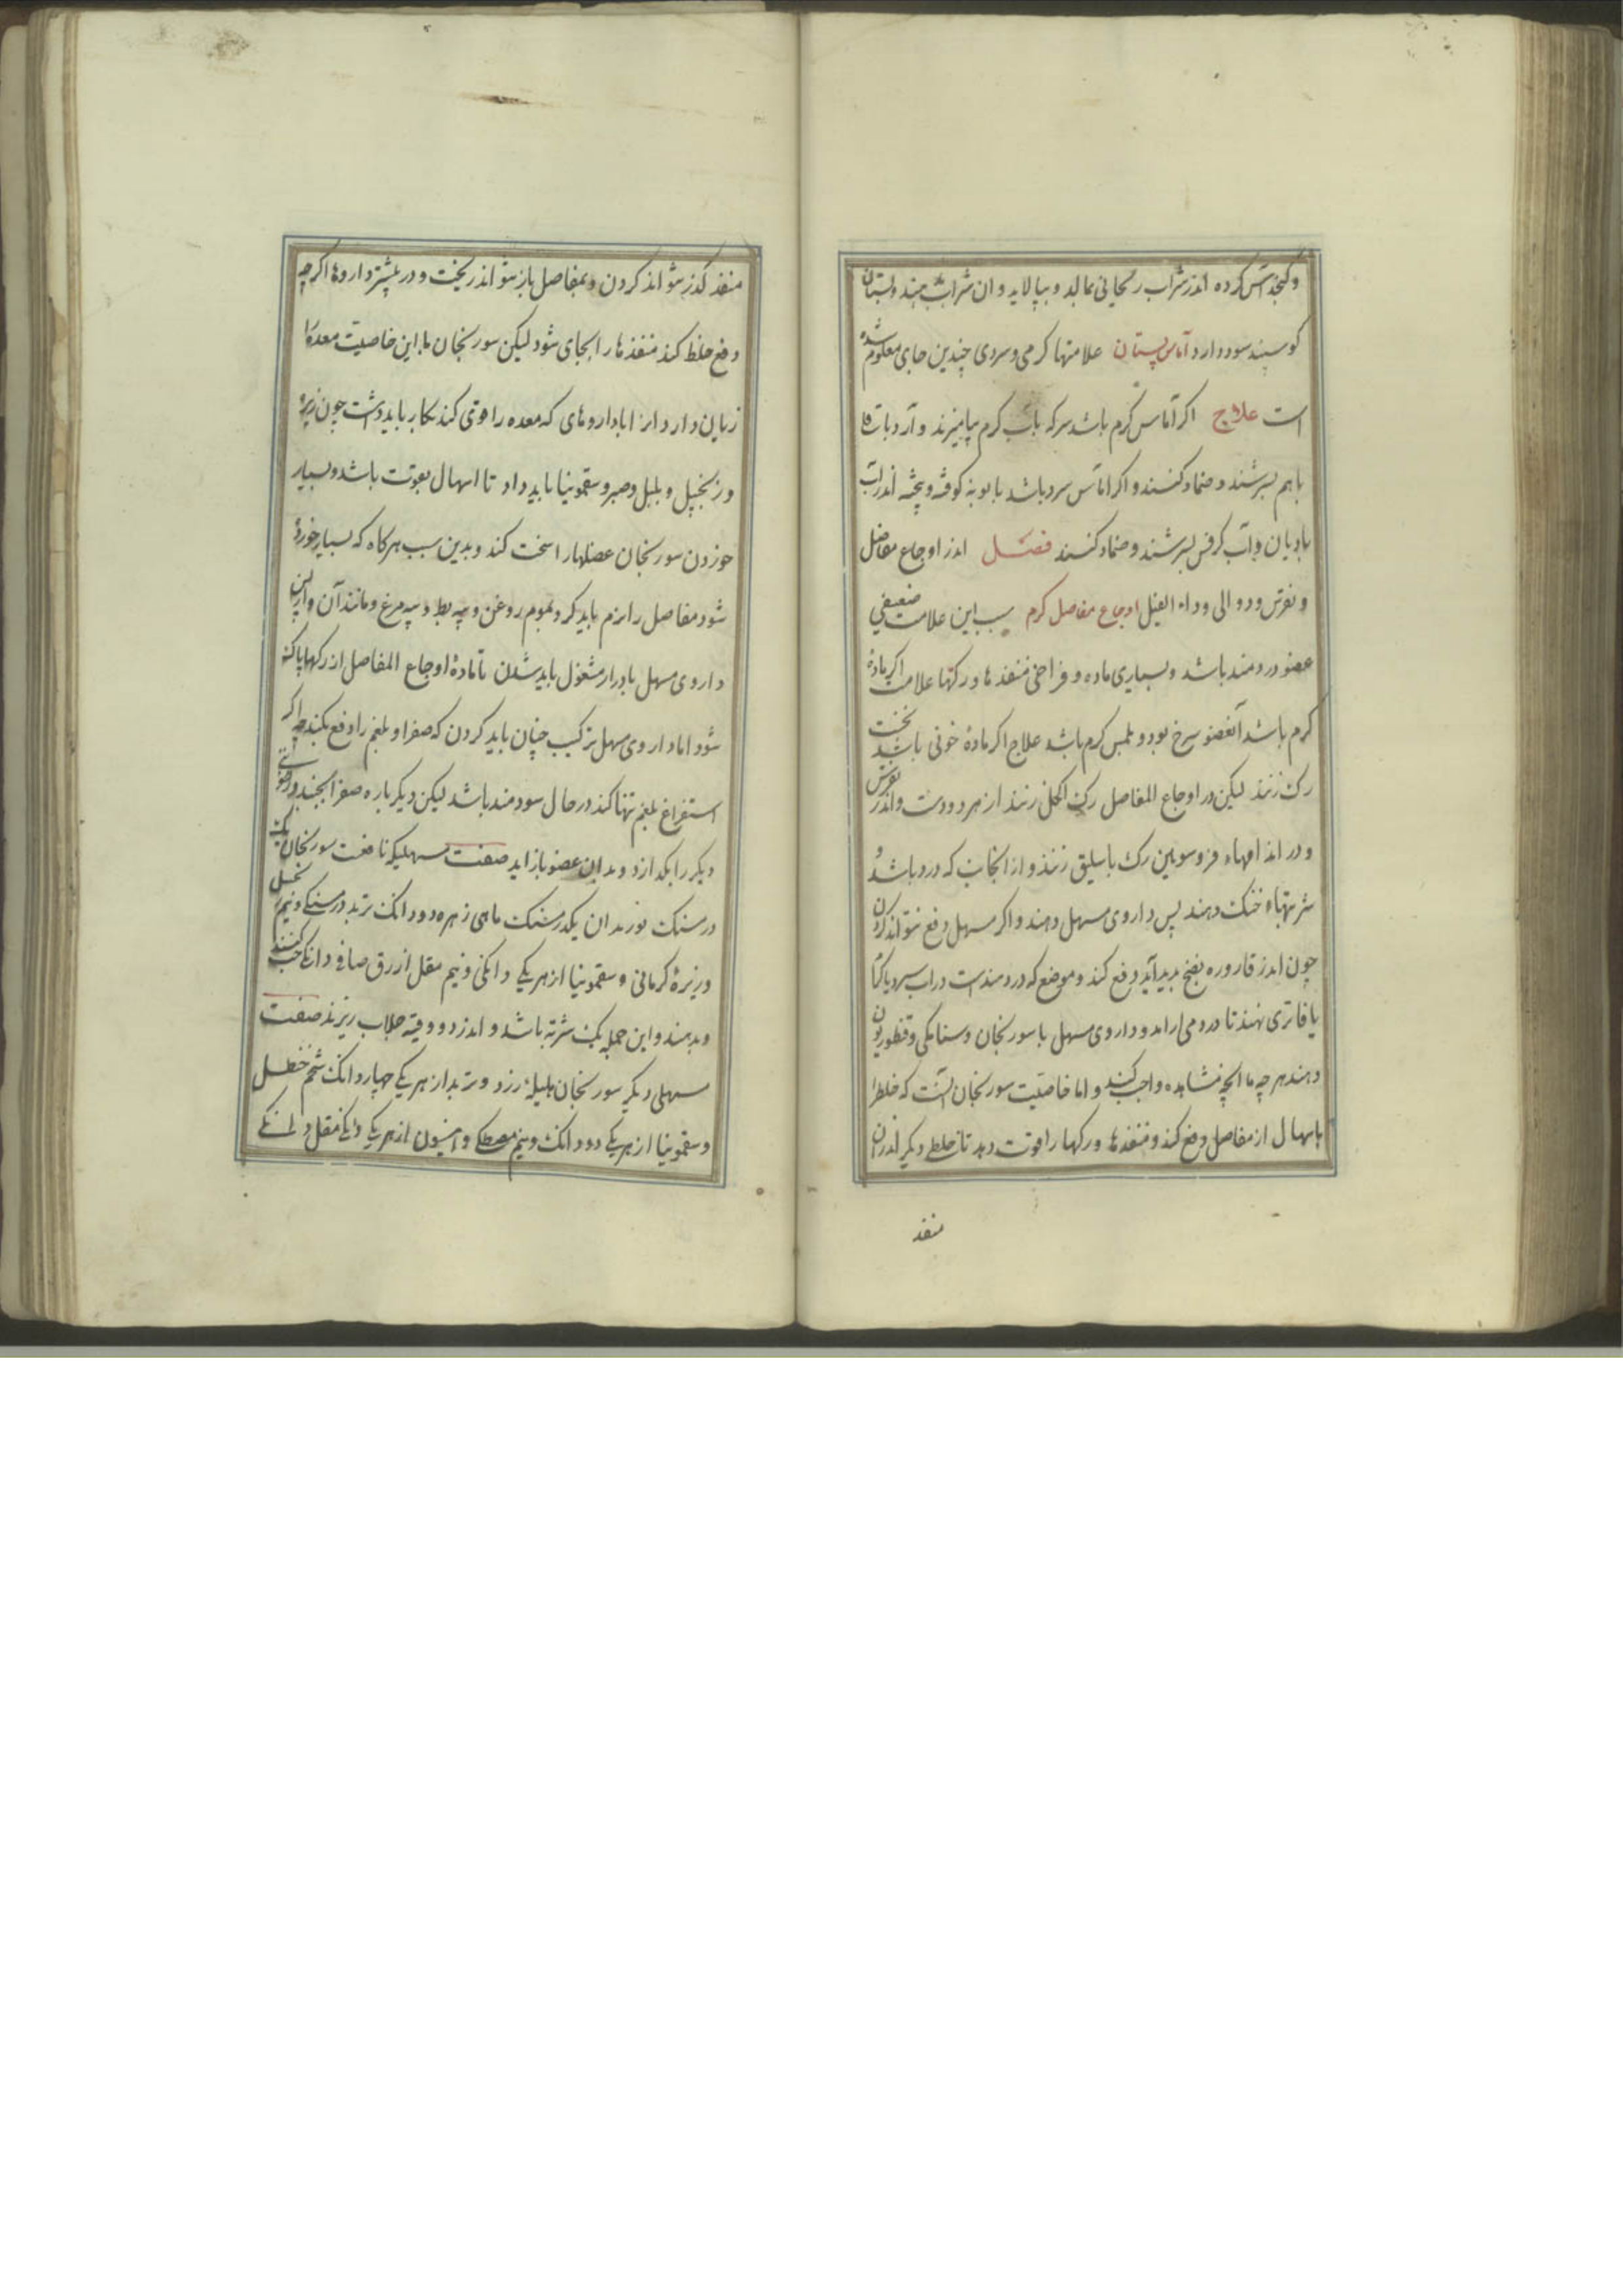 و کنجد آس کرده اندر شراب ریحانی بمالند و بپالاید و ان شراب بدهند و پستان
کوسپند سود دارد آماس پستان علامتها کرمی و سردی چندین جای معلوم شده
است علاج اکر آماس کرم باشد سرکه بآب کرم بیامیزند و آرد باقلا
باهم بسرشند و ضماد کنند و اکر اماس سرد باشد بابونه کوفته و پخته اندر آب
بادیان و آب کرفس بسرشند و ضماد کنند فصل اندر اوجاع مفاصل
و نقرس و دوالی و داء الفیل اوجاع مفاصل کرم سبب این علامت ضعیفی
عضو دردمند باشد و بسیاری ماده و فراخی منفذها و رکها علامت اکر ماده
کرم باشد آنعضو سرخ بود و بلمس کرم باشد علاج اکر مادۀ خونی باشد نخست
رک زنند لیکن در اوجاع المفاصل رک اکحل زنند از هر دو دست و اندر نقرس
و در اندامهاء فروسوئین رک باسلیق زنند و از انجانب که درد باشد و
شربتهاء خنک دهند پس داروی مسهل دهند و اکر مسهل دفع نتواند کردن
چون اندر قاروره نضج پدید آید دفع کند و موضع که دردمندست در اب سرد یا کما
یا فاتری نهند تا درد می ارامد و داروی مسهل با سورنجان و سنا مکی و قنطوریون
دهند هرچه ما انچه مشاهده واجب کند و اما خاصیت سورنجان آنست که خلط را
باسهال از مفاصل دفع کند و منفذها و رکها را قوت دهد تا خلط دیکر اندر ان
منفذ
منفذ کذر نتواند کردن و بمفاصل باز نتواند ریخت و در بیشتر داروها اکرچه
دفع خلط کند منفذها را بجای شود لیکن سورنجان با این خاصیت معده را
زیان دارد انرا با داروهای که معده را قوی کند بکار باید داشت چون زیره
و زنجبیل و پلپل و صبر و سقمونیا باید داد تا اسهال بقوت باشد و بسیار
خوردن سورنجان عضلها را سخت کند و بدین سبب هر کاه که بسیار خورده
شود مفاصل را نرم باید کرد بموم روغن و پیه بط و پیه مرغ و مانند آن و از پس
داروی مسهل بادرار مشغول باید شدن تا مادۀ اوجاع المفاصل از رکها پاک
شود اما داروی مسهل ترکیب چنان باید کردن که صفرا و بلغم را دفع بکند چه اکر
استفراغ بلغم تنها کند در حال سودمند باشد لیکن دیکر باره صفرا بجنبد و
دیکر را بکدازد و بدان عضو باز اید صفت مسهلیکه نافعست سورنجان یک
درمسنک بوزیدان یکدرمسنک ماهی زهره دو دانک تربد درمسنکی و نیم
و زیرۀ کرمانی و سقمونیا از هر یکی دانکی و نیم مقل ازرق صافی دانکی حب کنند
و بدهند و این جمله یک شربة باشد و اندر دو وقیه جلاب ریزند صفت
مسهلی دیکر سورنجان هلیلۀ زرد و تربد از هر یکی چهار دانک شحم حنظل
و سقمونیا از هر یکی دو دانک و نیم مصطکی و انیسون از هر یکی دانکی مقل دانکی